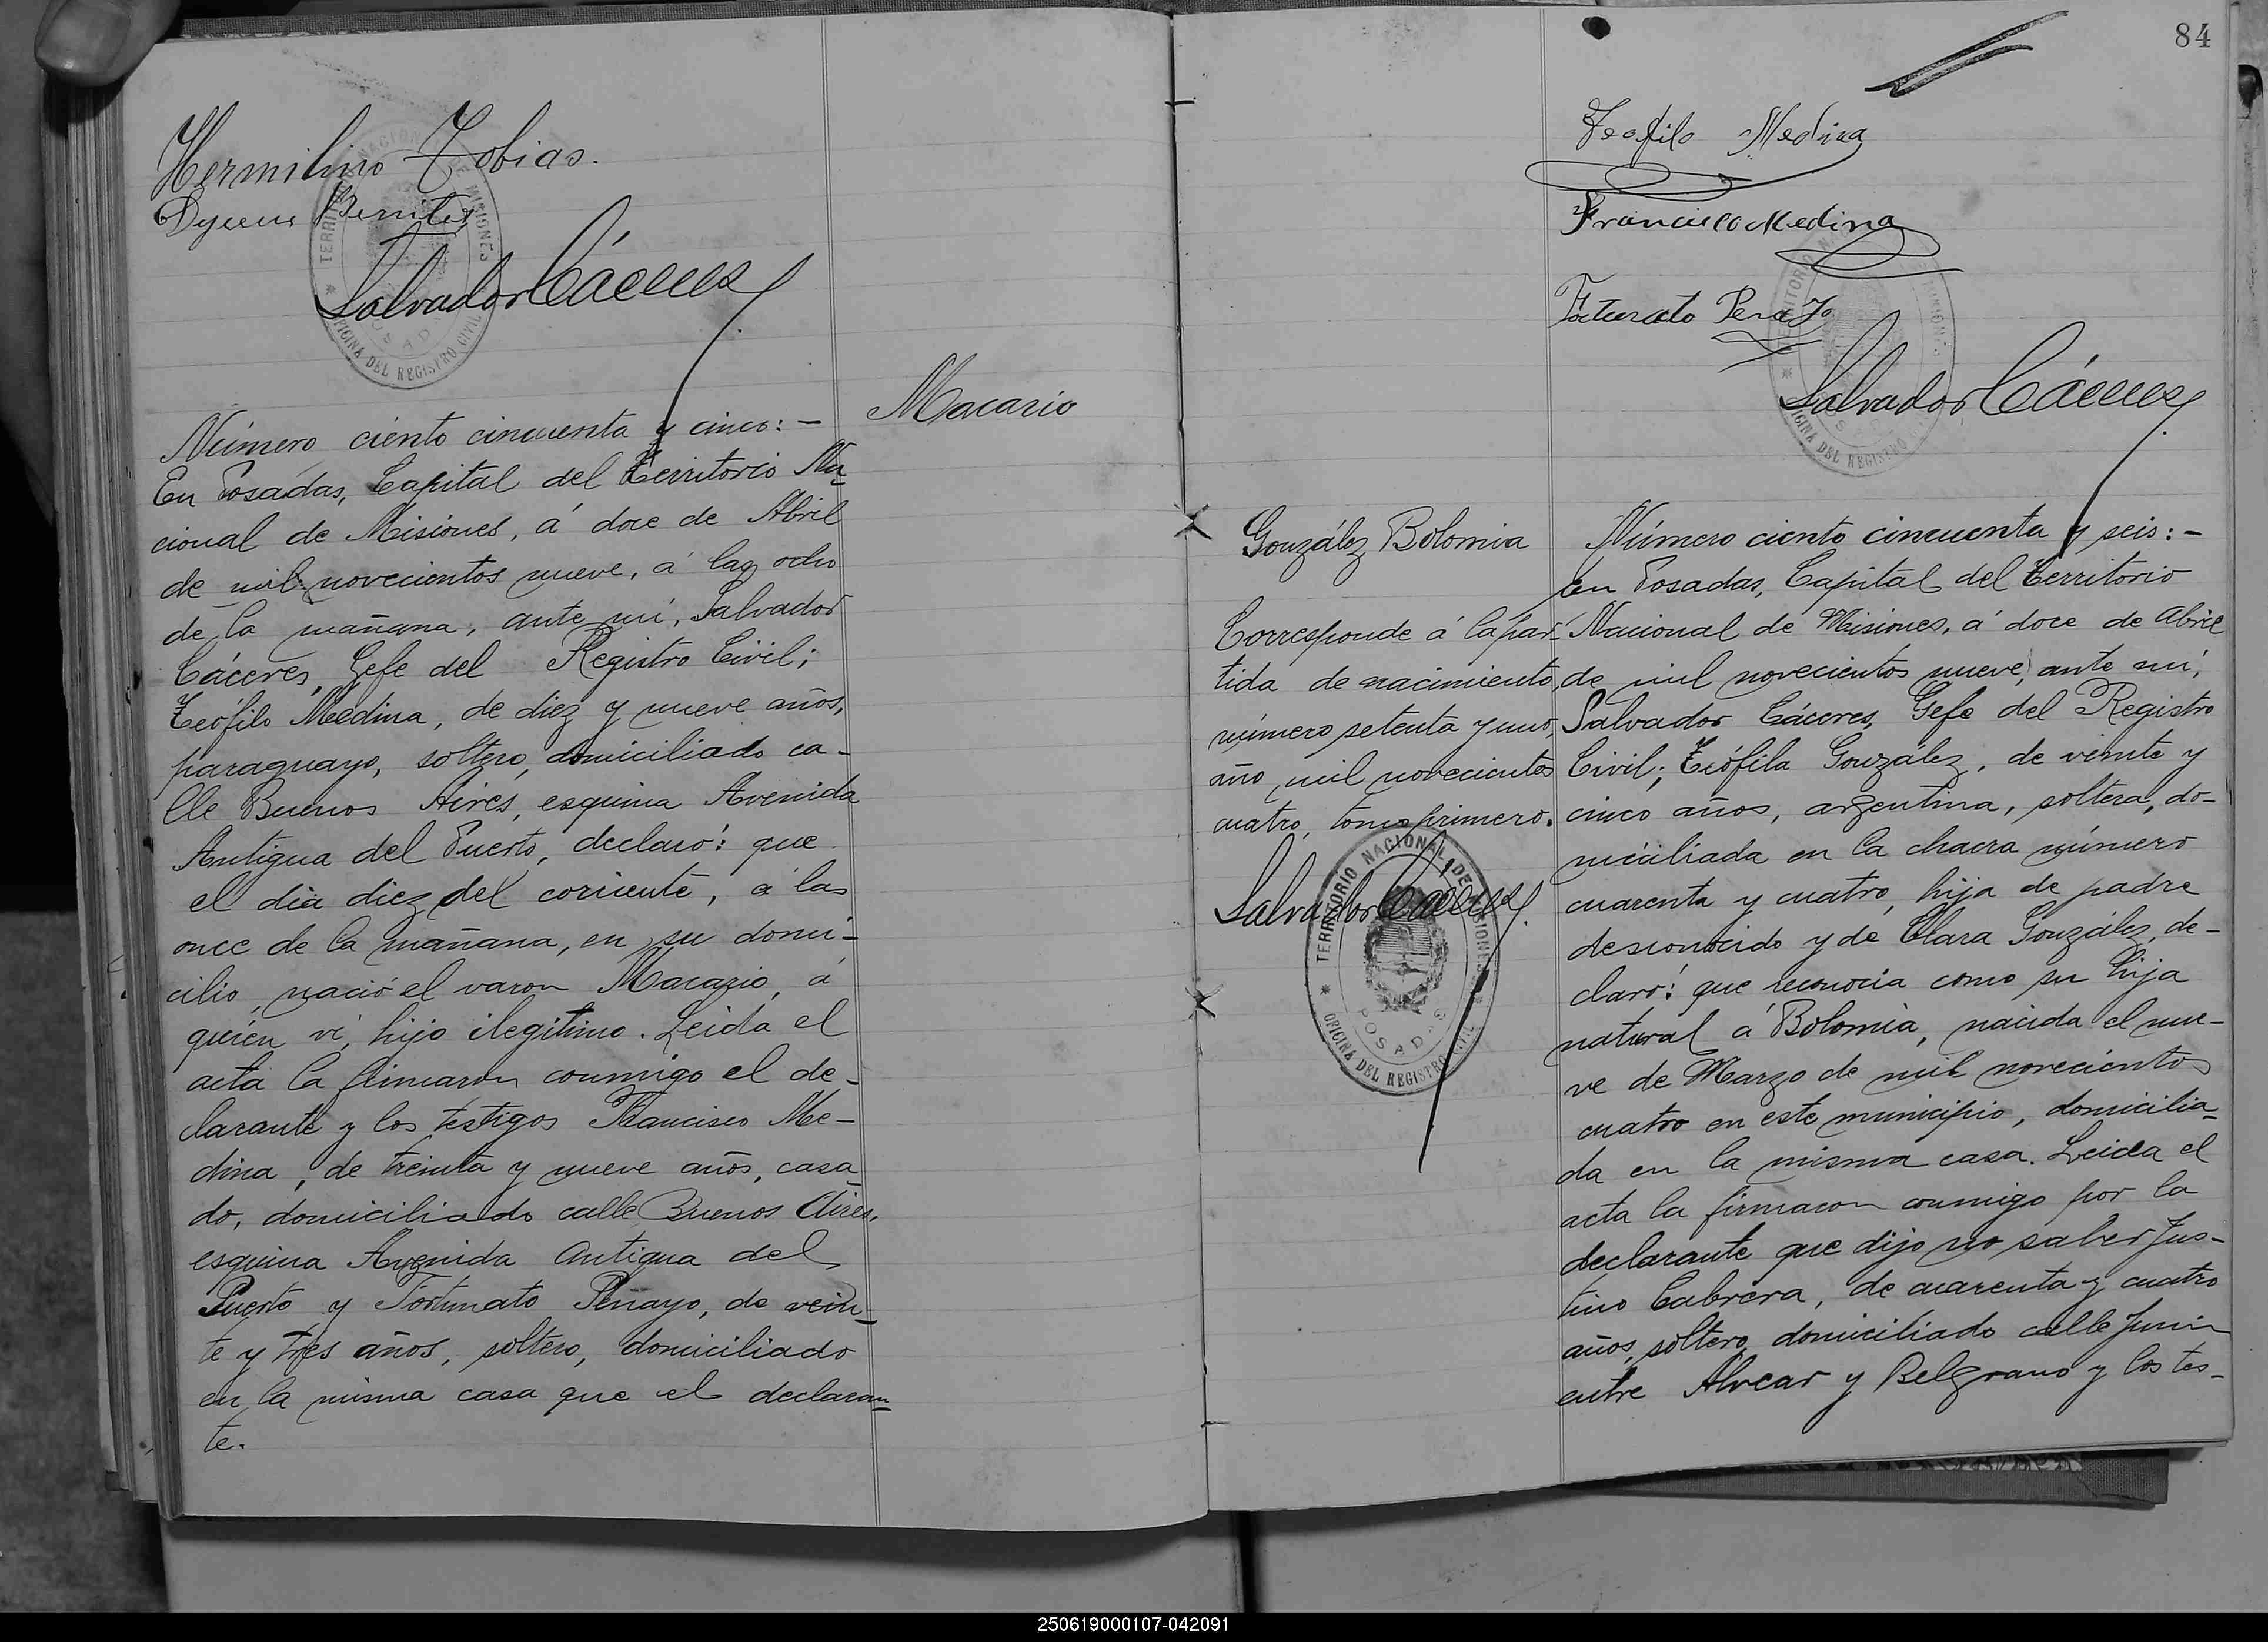 Hermilino Tobias.
Benitez
Salvador Cáceres
Número ciento cincuenta y cinco:-
En Posadas, Capital del Territorio Na-
cional de Misiones, á doce de Abril
de mil novecientos nueve, á las ocho
de la mañana, ante mí, Salvador
Cáceres, Gefe del Registro Civil;
Teófilo Medina, de diez y nueve años,
paraguayo, soltero, domiciliado ca-
lle Buenos Aires, esquina Avenida
Antigua del Puerto, declaró: que
el dia diez del corriente, á las
once de la mañana, en su domi-
cilio, nació el varon Macario, á
quien ví, hijo ilegitimo. Leida el
acta la firmaron conmigo el de-
clarante y los testigos Francisco Me-
dina, de treinta y nueve años, casa-
do, domiciliado calle Buenos Aires,
esquina Avenida Antigua del
Puerto y Fortunato Penayo, de vein-
te y tres años, soltero, domiciliado
en la misma casa que el declaran-
te.
Macario
84
Teofilo Medina
Francisco Medina
Fortunato Penayo
Salvador Cáceres
González Bolomia
Corresponde á la par-
tida de nacimiento,
número setenta y uno,
año mil novecientos
cuatro, tomo primero.
Salvador Cáceres
TERRITORIO NACIONAL DE MISIONES
POSADAS
OFICINA DEL REGISTRO CIVIL
Número ciento cincuenta y seis:-
En Posadas, Capital del Territorio
Nacional de Misiones, á doce de Abril
de mil novecientos nueve, ante mí,
Salvador Cáceres, Gefe del Registro
Civil; Teófila González, de veinte y
cinco años, argentina, soltera, do-
miciliada en la chacra número
cuarenta y cuatro, hija de padre
desconocido y de Clara González, de-
claró: que reconocia como su hija
natural á Bolomia, nacida el nue-
ve de Marzo de mil novecientos
cuatro en este municipio, domicilia-
da en la misma casa. Leida el
acta la firmaron conmigo por la
declarante que dijo no saber Jus-
tino Cabrera, de cuarenta y cuatro
años, soltero, domiciliado calle Junin
entre Alvear y Belgrano y los tes-
250619000107-042091